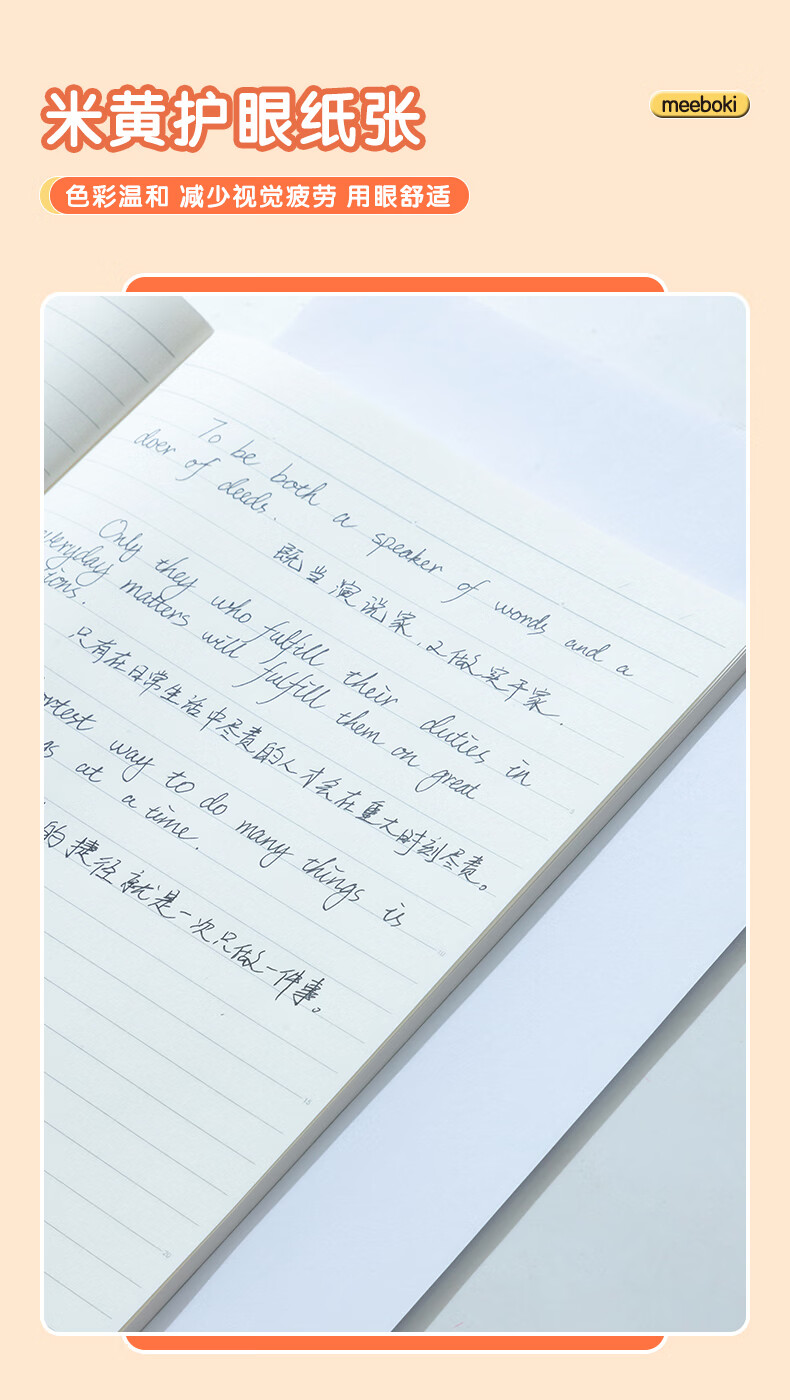 米黄护眼纸张
meeboki
色彩温和 减少视觉疲劳 用眼舒适
To be both a speaker of words and a
doer of deeds.
既当演说家，又做实干家．
Only they who fulfill their duties in
everyday matters will fulfill them on great
ions.
只有在日常生活中尽责的人才会在重大时刻尽责。
rtest way to do many things is
gs at a time.
的捷径就是一次只做一件事。